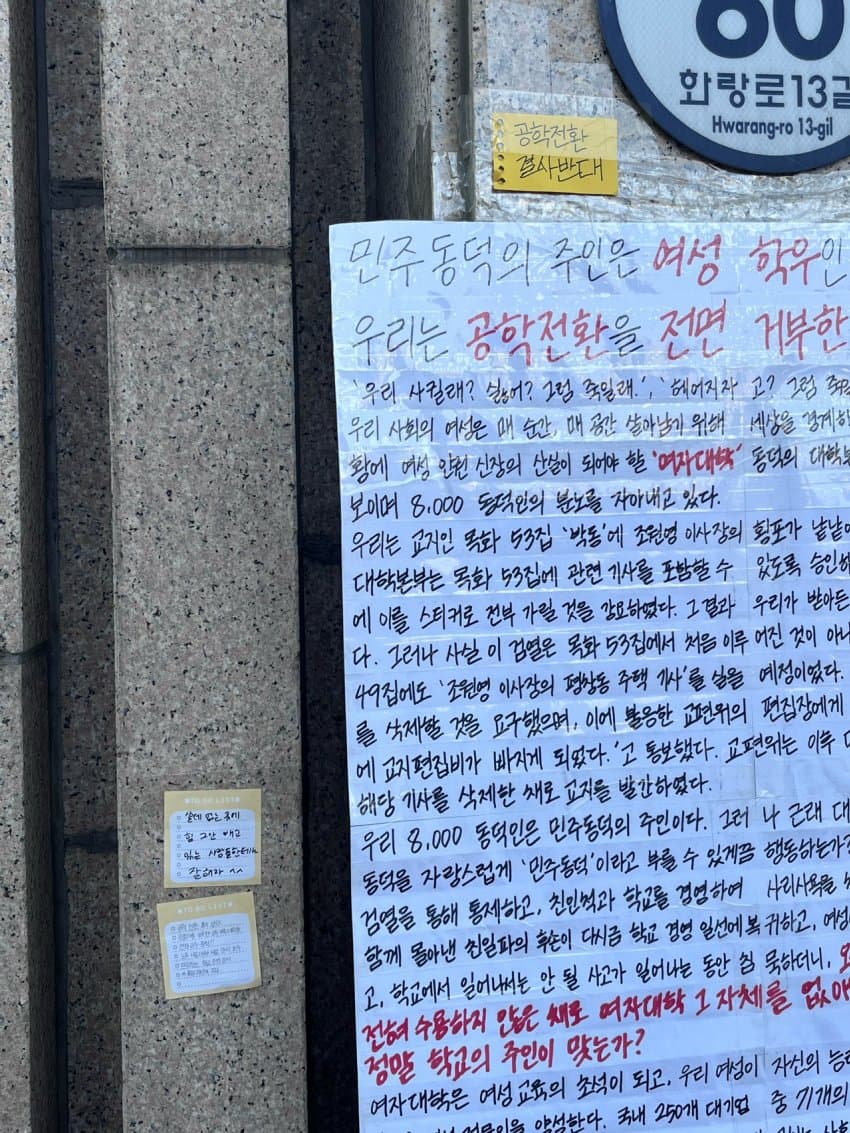 60
화랑로13길
Hwarang-ro 13-gil
공학전환
결사반대
민주동덕의 주인은 여성 학우인
우리는 공학전환을 전면 거부한
'우리 사귈래? 싫어? 그럼 죽일래.', '헤어지자 고? 그럼 죽
우리 사회의 여성은 매 순간, 매 공간 살아남기 위해 세상을 경계하
황에 여성 안원 신장의 산실이 되어야 할 '여자대학' 동덕의 대학본
보이며 8,000 동덕인의 분노를 자아내고 있다.
우리는 교지인 목화 53집 '박동'에 조원영 이사장의 횡포가 낱낱이
대학본부는 목화 53집에 관련 기사를 포함할 수 있도록 승인하
에 이를 스티커로 전부 가릴 것을 강요하였다. 그 결과 우리가 받아든
다. 그러나 사실 이 검열은 목화 53집에서 처음 이루어진 것이 아니
49집에도 '조원영 이사장의 평창동 주택 기사'를 실을 예정이었다.
를 삭제할 것을 요구했으며, 이에 불응한 교편위의 편집장에게
에 교지편집비가 빠지게 되었다.'고 통보했다. 교편위는 이후
해당 기사를 삭제한 채로 교지를 발간하였다.
우리 8,000 동덕인은 민주동덕의 주인이다. 그러 나 근래 대
동덕을 자랑스럽게 '민주동덕'이라고 부를 수 있게끔 행동하는가?
검열을 통해 통제하고, 친인척과 학교를 경영하며 사리사욕을
함께 몰아낸 친일파의 후손이 다시금 학교 경영 일선에 복귀하고, 여성
고, 학교에서 일어나서는 안 될 사고가 일어나는 동안 침묵하더니,
전혀 수용하지 않은 채로 여자대학 그 자체를 없애
정말 학교의 주인이 맞는가?
여자대학은 여성 교육의 초석이 되고, 우리 여성이 자신의 능력
전문인을 양성한다. 국내 250개 대기업 중 71개의
TO DO LIST
힘 그만 빼고
있는 사람들한테나
잘해라 ^^
TO DO LIST